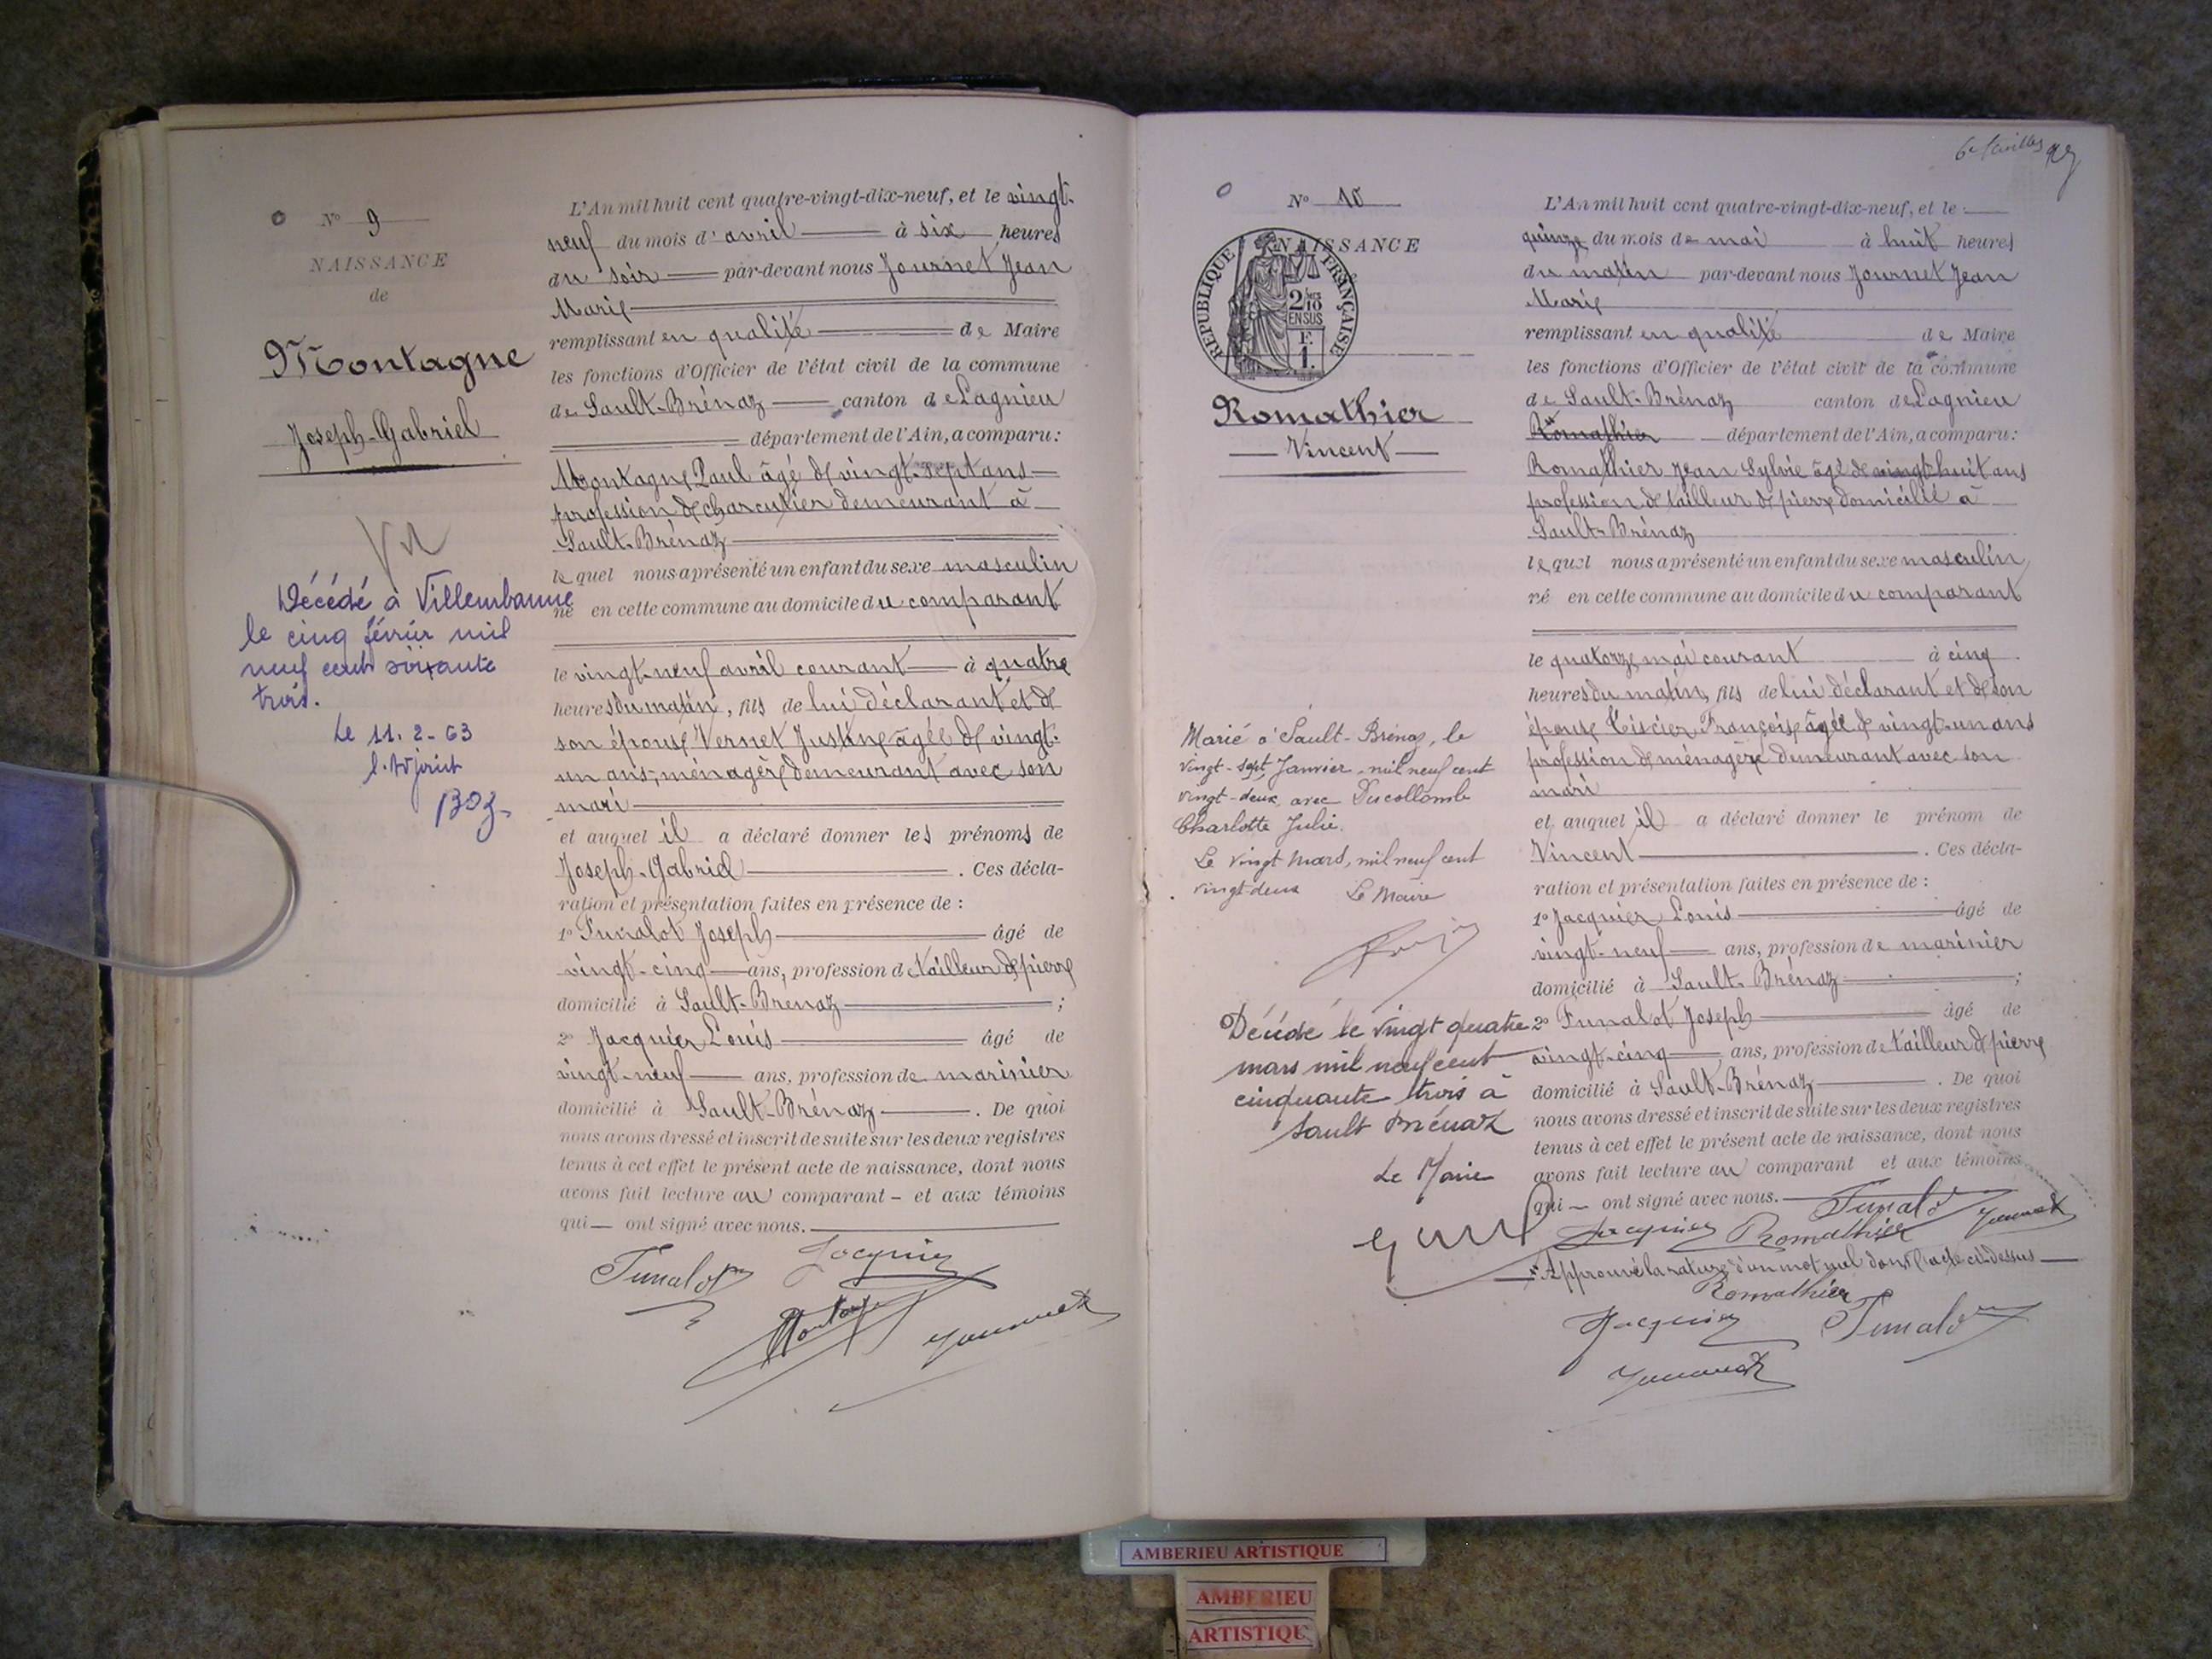 N° 9
NAISSANCE
de
Montagne
Joseph-Gabriel
Décédé à Villeurbanne
le cinq février mil
neuf cent soixante
trois.
Le 11.2-63
L'Adjoint
L'An mil huit cent quatre-vingt-dix-neuf, et le vingt-
neuf du mois d'avril à six heures
du soir par-devant nous Journet Jean
Marie
remplissant en qualité de Maire
les fonctions d'Officier de l'état civil de la commune
de Sault-Brénaz canton de Lagnieu
département de l'Ain, a comparu :
Montagne Paul âgé de vingt-sept ans
profession de charcutier demeurant à
Sault-Brénaz
lequel nous a présenté un enfant du sexe masculin
né en cette commune au domicile du comparant
le vingt-neuf avril courant à quatre
heures du matin, fils de lui déclarant et de
son épouse Vernet Justine âgée de vingt-
un ans, ménagère demeurant avec son
mari
et auquel il a déclaré donner les prénoms de
Joseph-Gabriel . Ces décla-
ration et présentation faites en présence de :
1° Funalot Joseph âgé de
vingt-cinq ans, profession de tailleur de pierre
domicilié à Sault-Brenaz ;
2° Jacquier Louis âgé de
vingt-neuf ans, profession de marinier
domicilié à Sault-Brénaz . De quoi
nous avons dressé et inscrit de suite sur les deux registres
tenus à cet effet le présent acte de naissance, dont nous
avons fait lecture au comparant - et aux témoins
qui — ont signé avec nous.
Funalot Jacquier
Montagne Journet
6e feuillet
N° 10
NAISSANCE
RÉPUBLIQUE FRANÇAISE
2/10 MES
EN SUS
F.
1.
Romathier
Vincent
Marié à Sault-Brénaz, le
vingt-sept Janvier, mil neuf cent
vingt-deux, avec Ducollomb
Charlotte Julie.
Le vingt mars, mil neuf cent
vingt-deux Le Maire
Décédé le vingt quatre
mars mil neuf cent
cinquante trois à
Sault Brénaz
Le Maire
L'An mil huit cent quatre-vingt-dix-neuf, et le
quinze du mois de mai à huit heures
du matin par-devant nous Journet Jean
Marie
remplissant en qualité de Maire
les fonctions d'Officier de l'état civil de la commune
de Sault-Brénaz canton de Lagnieu
Romathier département de l'Ain, a comparu :
Romathier Jean Sylvie âgé de vingt-huit ans
profession de tailleur de pierre domicilié à
Sault-Brénaz
lequel nous a présenté un enfant du sexe masculin
né en cette commune au domicile du comparant
le quatorze mai courant à cinq
heures du matin, fils de lui déclarant et de son
épouse Tiscier Françoise âgée de vingt-un ans
profession de ménagère demeurant avec son
mari
et auquel il a déclaré donner le prénom de
Vincent . Ces décla-
ration et présentation faites en présence de :
1° Jacquier Louis âgé de
vingt-neuf ans, profession de marinier
domicilié à Sault-Brénaz ;
2° Funalot Joseph âgé de
vingt-cinq ans, profession de tailleur de pierre
domicilié à Sault-Brénaz . De quoi
nous avons dressé et inscrit de suite sur les deux registres
tenus à cet effet le présent acte de naissance, dont nous
avons fait lecture au comparant et aux témoins
qui — ont signé avec nous. Funalot
Jacquier Romathier Journet
Approuvé la rature d'un mot nul dans l'acte ci-dessus
Romathier
Jacquier Funalot
Journet
AMBERIEU ARTISTIQUE
AMBERIEU
ARTISTIQUE